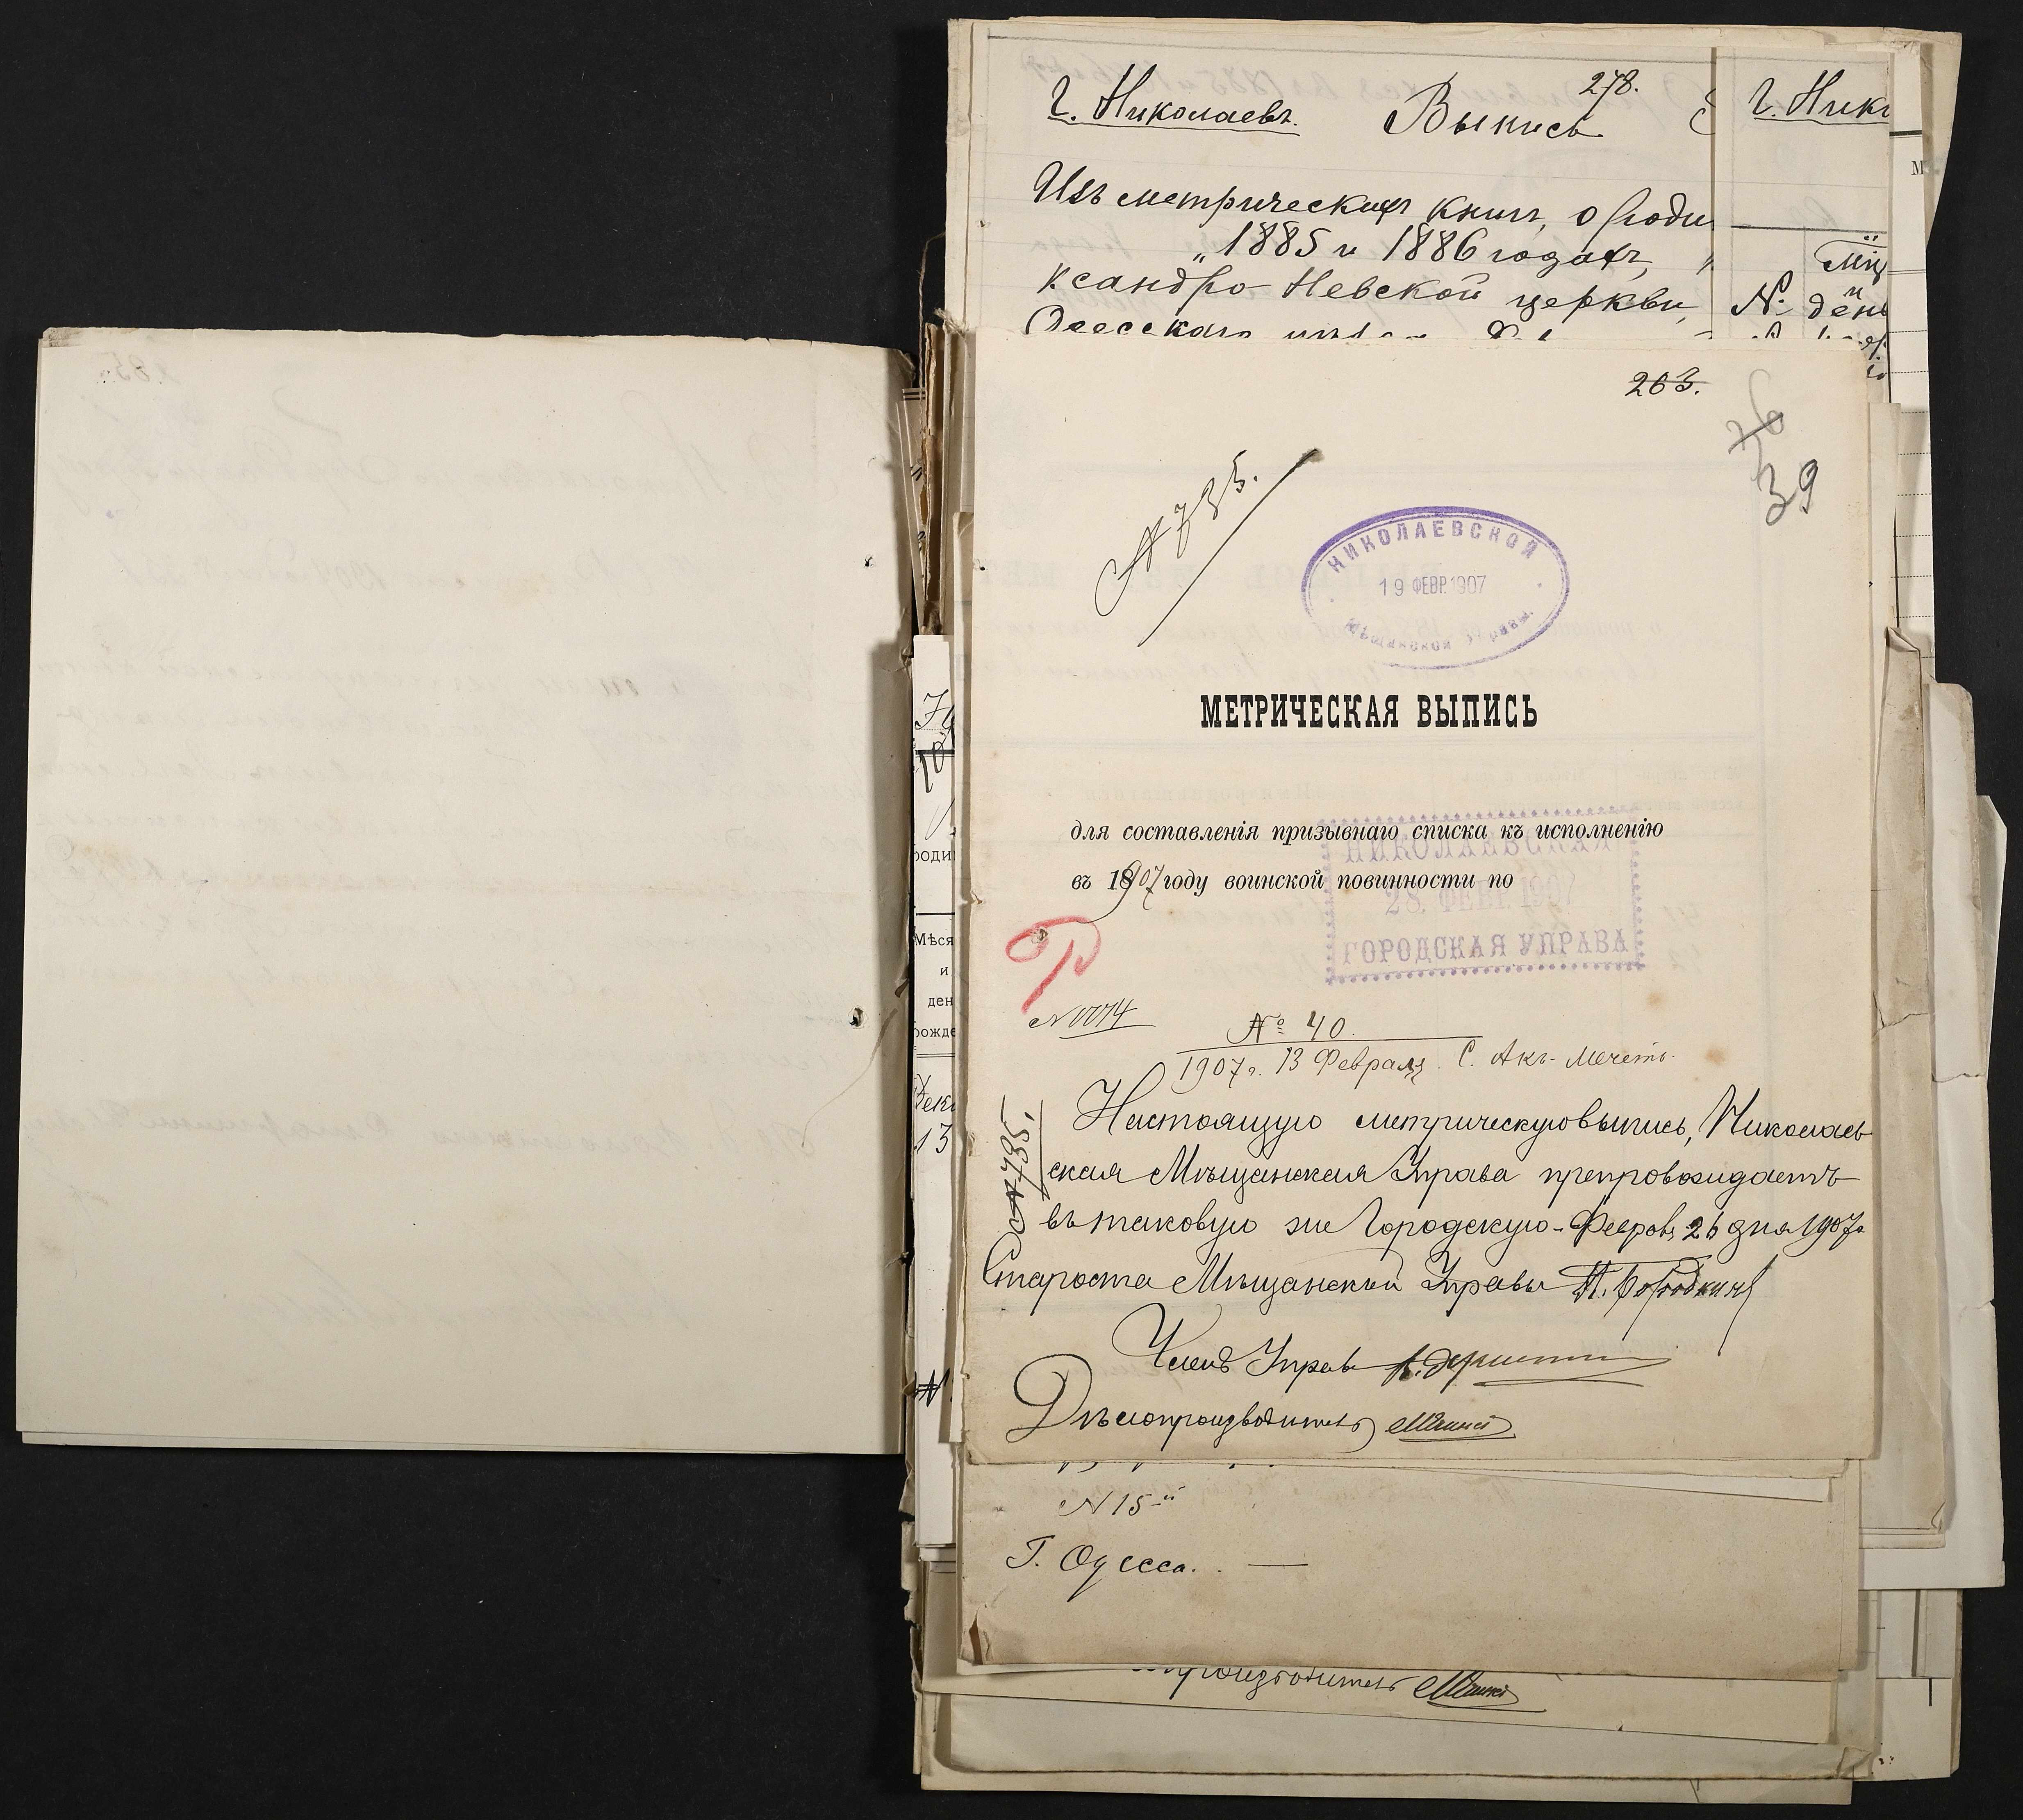 278.
г. Николаевъ. Выпись
г. Нико
Изъ метрическихъ книгъ, о родив
„1885 и 1886 годахъ,
ксандро-Невской церкви,
Одесского
М
№ день
и
263.
39
№ 735.
НИКОЛАЕВСКОЙ
19 ФЕВР. 1907
Мѣщанской Управы.
МЕТРИЧЕСКАЯ ВЫПИСЬ
для составленія призывнаго списка къ исполненію
въ 1907 году воинской повинности по
НИКОЛАЕВСКАЯ
28. ФЕВР. 1907
ГОРОДСКАЯ УПРАВА
№ 40.
1907 г. 13 Февраля. С. Акъ-Мечеть.
№ 735.
Настоящую метрическую выпись, Николаев
ская Мѣщанская Управа препровождаетъ
въ таковую же Городскую-Февраля 26 дня 1907 г.
Староста Мѣщанской Управы П. Бородкинъ
Членъ Управы
Дѣлопроизводитель
роди
Мѣся
и
ден
рожде
Дека
13
N 15-й
Г. Одесса. —
производитель